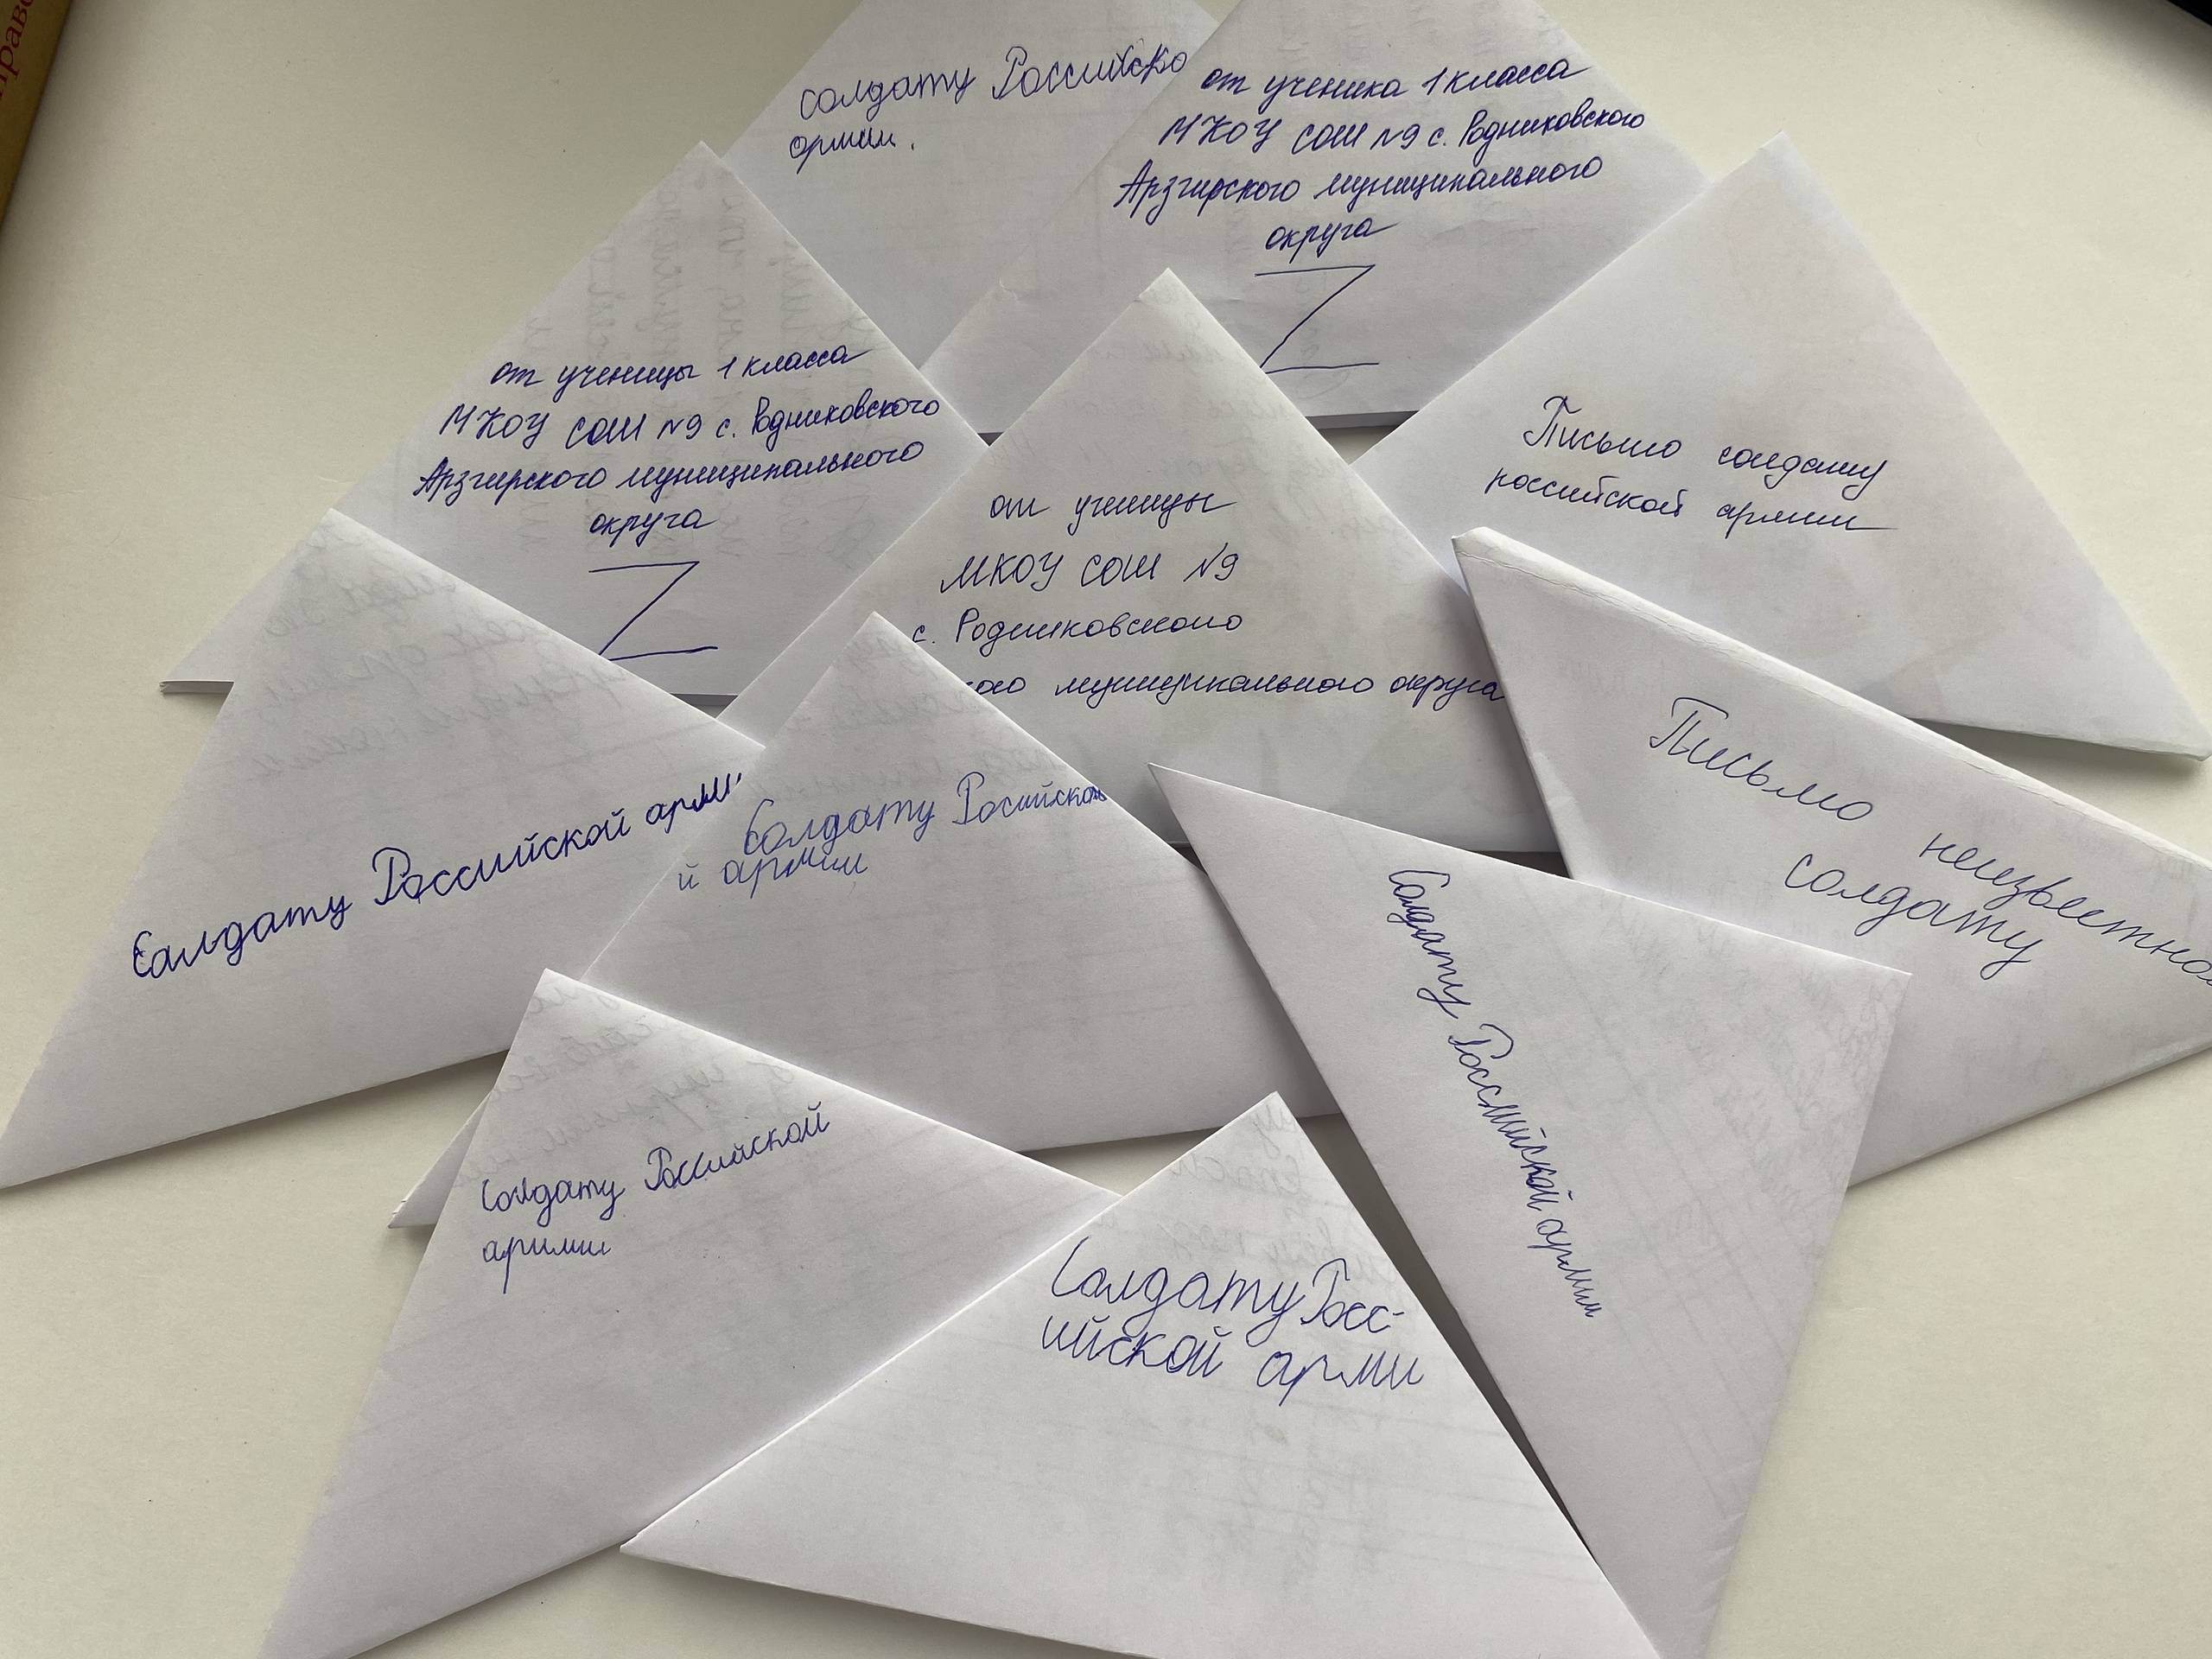 солдату Российско
армии.
от ученика 1 класса
МКОУ СОШ №9 с. Родниковского
Арзгирского муниципального
округа
Z
от ученицы 1 класса
МКОУ СОШ №9 с. Родниковского
Арзгирского муниципального
округа
Z
от ученицы
МКОУ СОШ №9
с. Родниковского
кого муниципального округа
Письмо солдату
российской армии
Письмо неизвестно
солдату
Солдату Российской арми
Солдату Росийской
й армии
Солдату Российской армии
Солдату Российской
армии
Солдату Росс-
ийской арми